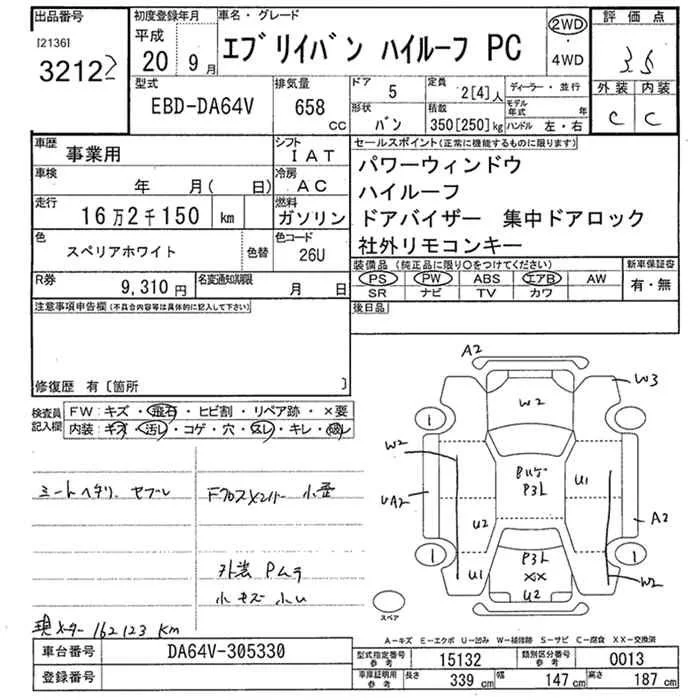 出品番号
[2136]
3212
初度登録年月
平成
20 9月
車名・グレード
エブリイバン ハイルーフ PC
2WD
・
4WD
評価点
3.5
外装 内装
C C
型式
EBD-DA64V
排気量
658 CC
ドア 5
定員 2[4]人
形状 バン
積載 350[250]kg
ディーラー・並行
モデル年式 年
ハンドル 左・右
車歴 事業用
シフト IAT
車検 年 月( 日)
冷房 AC
走行 16万2千150 km
燃料 ガソリン
色 スペリアホワイト 色替
色コード 26U
R券 9,310円
名変通知期限 月 日
セールスポイント(正常に機能するものに限ります)
パワーウィンドウ
ハイルーフ
ドアバイザー 集中ドアロック
社外リモコンキー
装備品(純正品に限り○をつけてください)
PS PW ABS エアB AW
SR ナビ TV カワ
新車保証書
有・無
後日品
注意事項申告欄(不具合内容等は具体的に記入して下さい)
修復歴 有〔箇所 〕
検査員記入欄
FW:キズ・飛石・ヒビ割・リペア跡・×要
内装:キズ・汚レ・コゲ・穴・スレ・キレ・破レ
シートヘタリ、ヤブレ
Fクロスメンバー 小歪
外装 Pムラ
小キズ 小U
現メーター 162123 Km
A2
W3
W2
1
1
W2
Bリペ
P3L
U1
UA2
U2
A2
U1
P3L
XX
U2
W2
1
1
スペア
A−キズ E−エクボ U−凹み W−補修跡 S−サビ C−腐食 XX−交換済
車台番号 DA64V-305330
登録番号
型式指定番号 参考 15132
類別区分番号 参考 0013
車庫証明用 参考 長さ 339 cm 幅 147 cm 高さ 187 cm